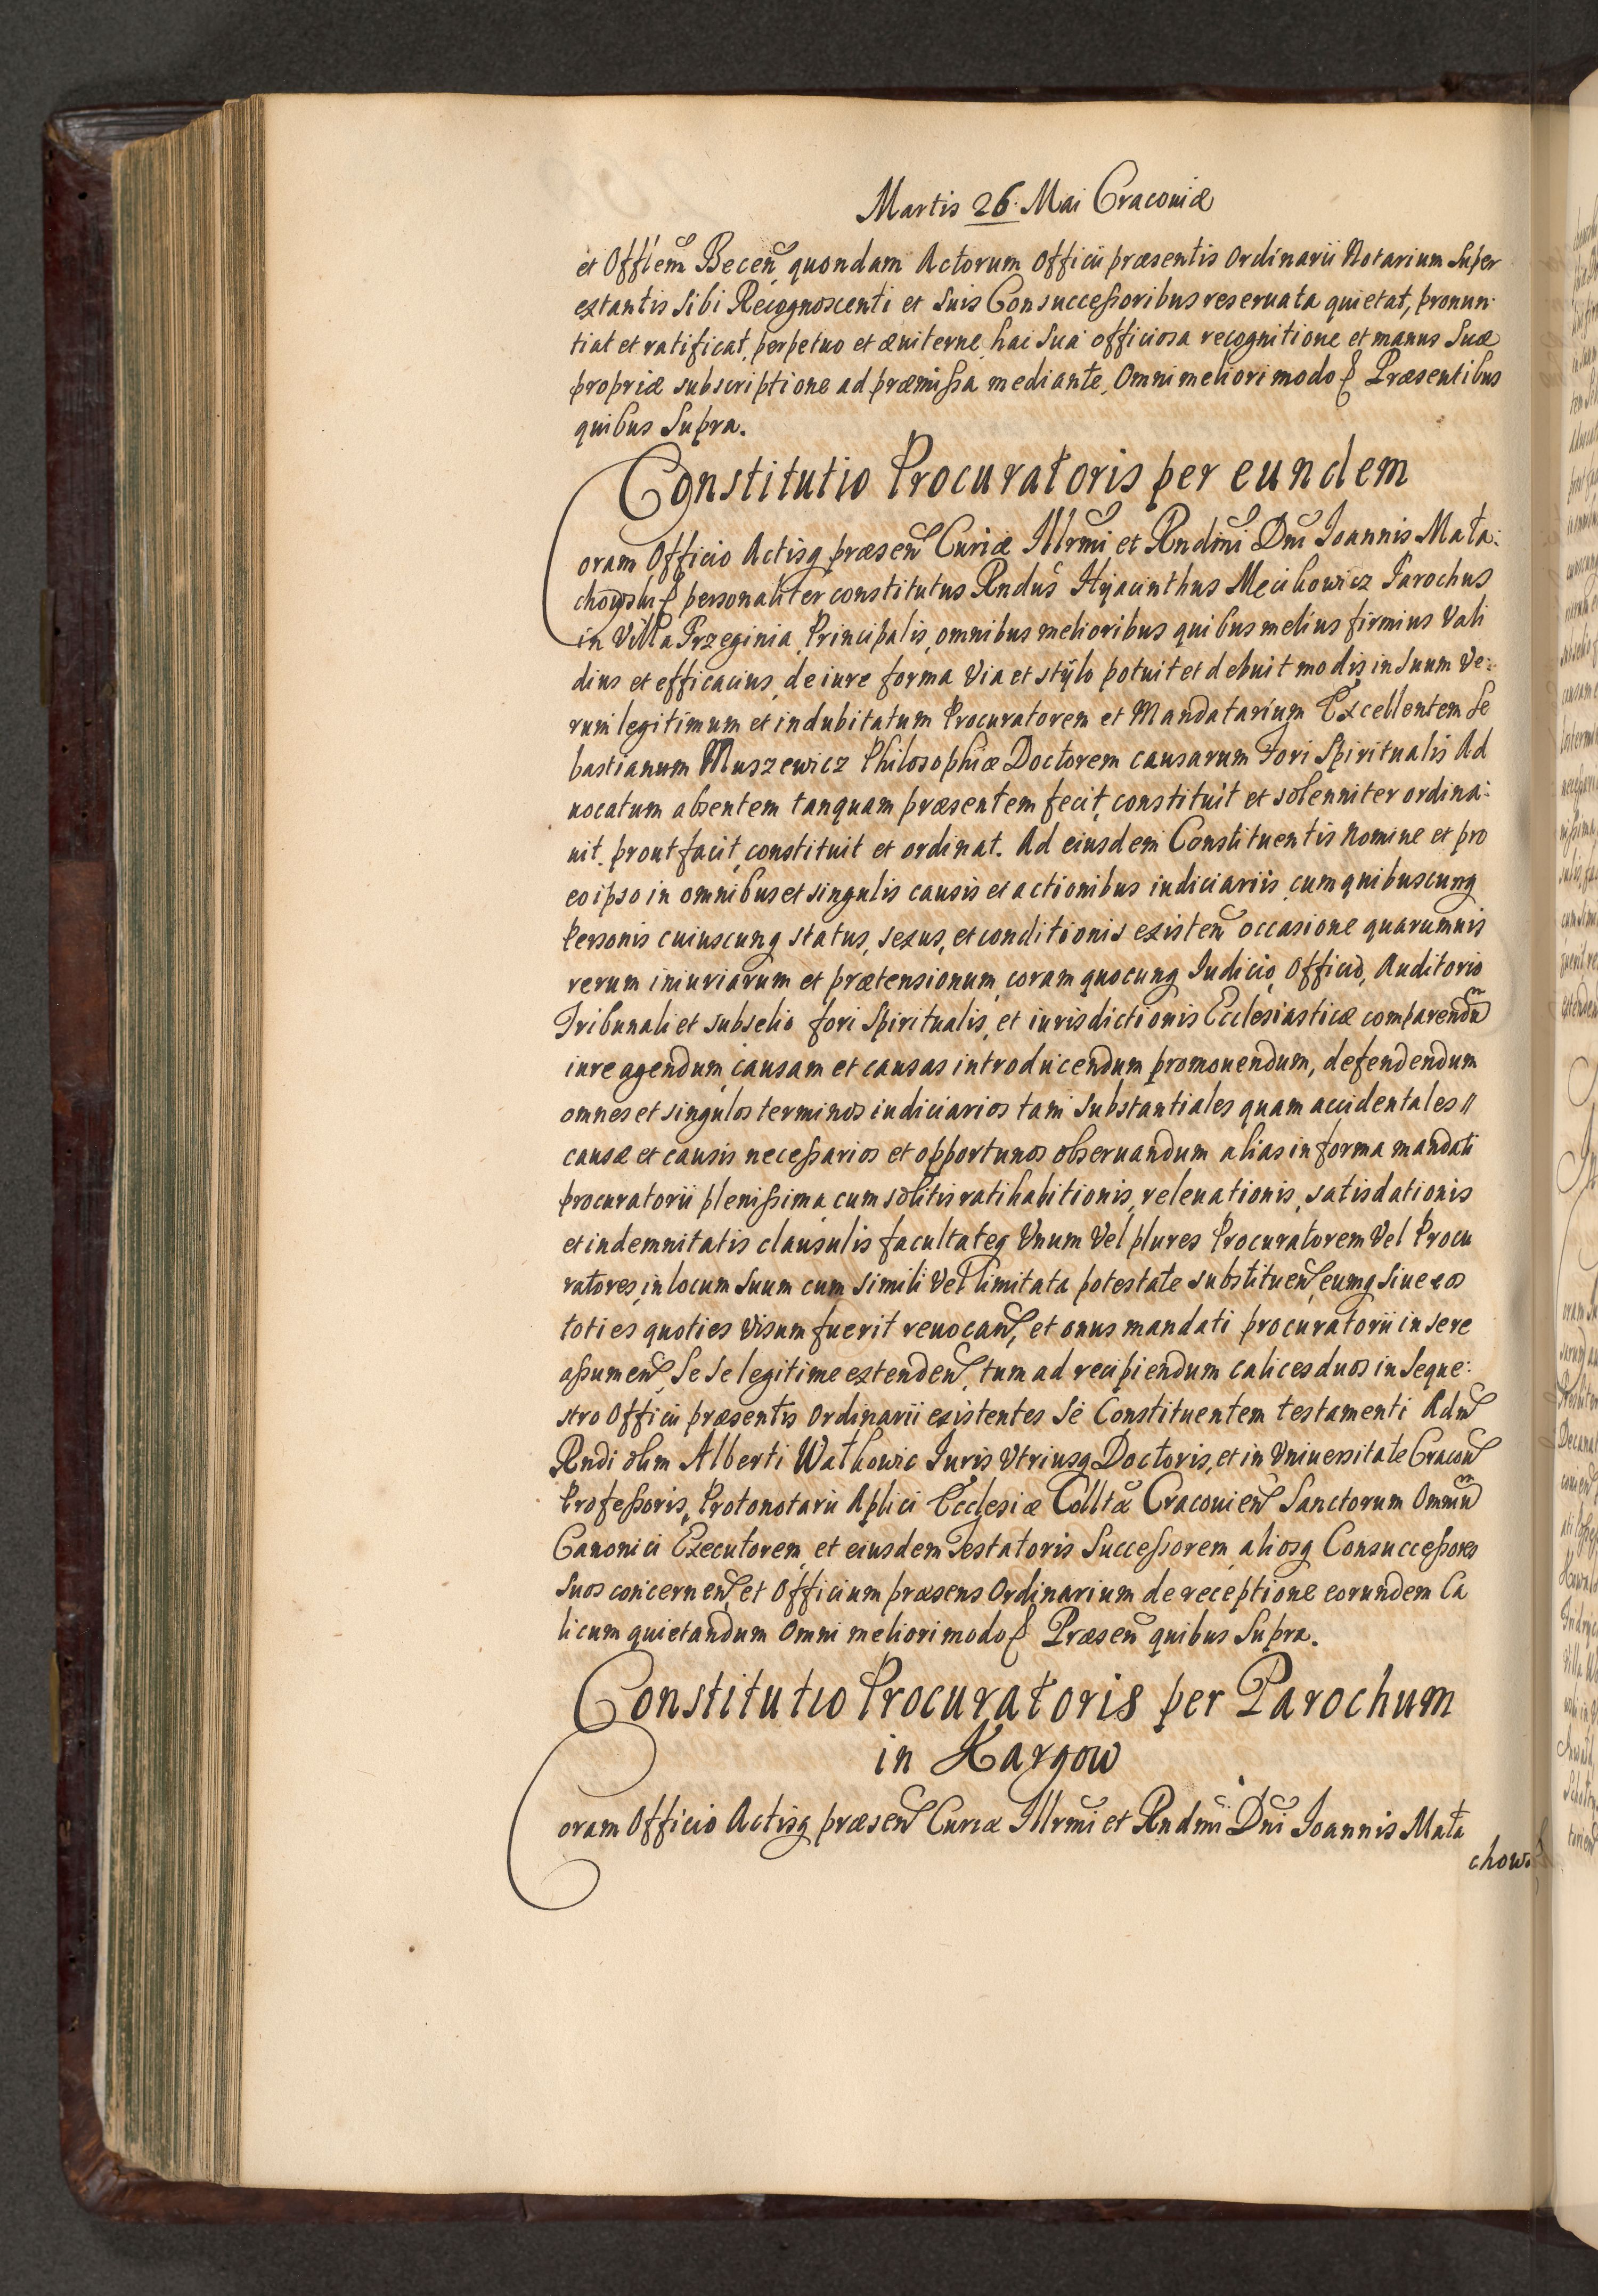 Martis 26. Mai Craconiæ
et Offlem Becen quondam Actorum Officii præsentis Ordinarii Notarium Super
extantis sibi Recognoscenti et suis Consuccessoribus reseruata quietat, pronun:
tiat et ratificat, perpetuo et æuiterne hac sua officiosa recognitione et manus suæ
propriæ subscriptione ad præmissa mediante, Omni meliori modo Præsentibus
quibus Supra.
Constitutio Procuratoris per eundem
Coram Officio Actisq præsen Curiæ Illrmi et Rndmi Dni Ioannis Mała:
chowski personaliter constitutus Rndus Hyacinthus Mecikowicz Parochus
in Villa Przeginia, Principalis, omnibus melioribus quibus melius firmius Vali
dius et efficacius, de iure forma Via et stÿlo potuit et debuit modis in suum Ve:
rum legitimum et indubitatum Procuratorem et Mandatarium Excellentem Se
bastianum Muszewicz Philosophiæ Doctorem causarum Fori Spiritualis Ad
uocatum absentem tanquam præsentem fecit, constituit et solenniter ordina:
uit. prout facit, constituit et ordinat. Ad eiusdem Constituentis nomine et pro
eo ipso in omnibus et singulis causis et actionibus iudiciariis cum quibuscunq
Personis cuiuscunq status, sexus, et conditionis existen occasione quarumuis
rerum iniuriarum et prætensionum, coram quocunq Iudicio, Officio, Auditorio
Tribunali et subselio fori Spiritualis, et iurisdictionis Ecclesiasticæ comparendu
iure agendum, causam et causas introducendum promouendum, defendendum
omnes et singulos terminos iudiciarios tam substantiales quam accidentales //
causæ et causis necessarios et opportunos obseruandum alias in forma mandati
procuratorii plenissima, cum solitis ratihabitionis, releuationis, satisdationis
et indemnitatis clausulis facultateq Vnum Vel plures Procuratorem Vel Procu
ratores, in locum suum cum simili Vel limitata potestate substituen, eumq siue eos
toties quoties Visum fuerit reuocan, et onus mandati procuratorii in se re
assumen, Se se legitime extenden, tum ad recipiendum calices duos in Seque:
stro Officii præsentis Ordinarii existentes Se Constituentem testamenti Adm
Rndi olim Alberti Wathowic Iuris Vtriusq Doctoris, et in Vniuersitate Cracou
Professoris, Protonotarii Aplici Ecclesiæ Colltæ Cracouien Sanctorum Omniu
Canonici Executorem, et eiusdem Testatoris Successorem, aliosq Consuccessores
suos concernen, et Officium præsens Ordinarium de receptione eorundem Ca
licum quietandum Omni meliori modo Præsen quibus Supra.
Constitutio Procuratoris per Parochum
in Kargow
Coram Officio Actisq præsen Curiæ Illrmi et Rndmi Dni Ioannis Mała
chows